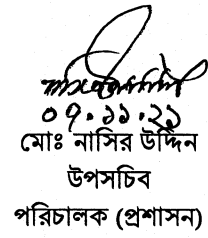 ০৭.১১.২১
মোঃ নাসির উদ্দিন
উপসচিব
পরিচালক (প্রশাসন)